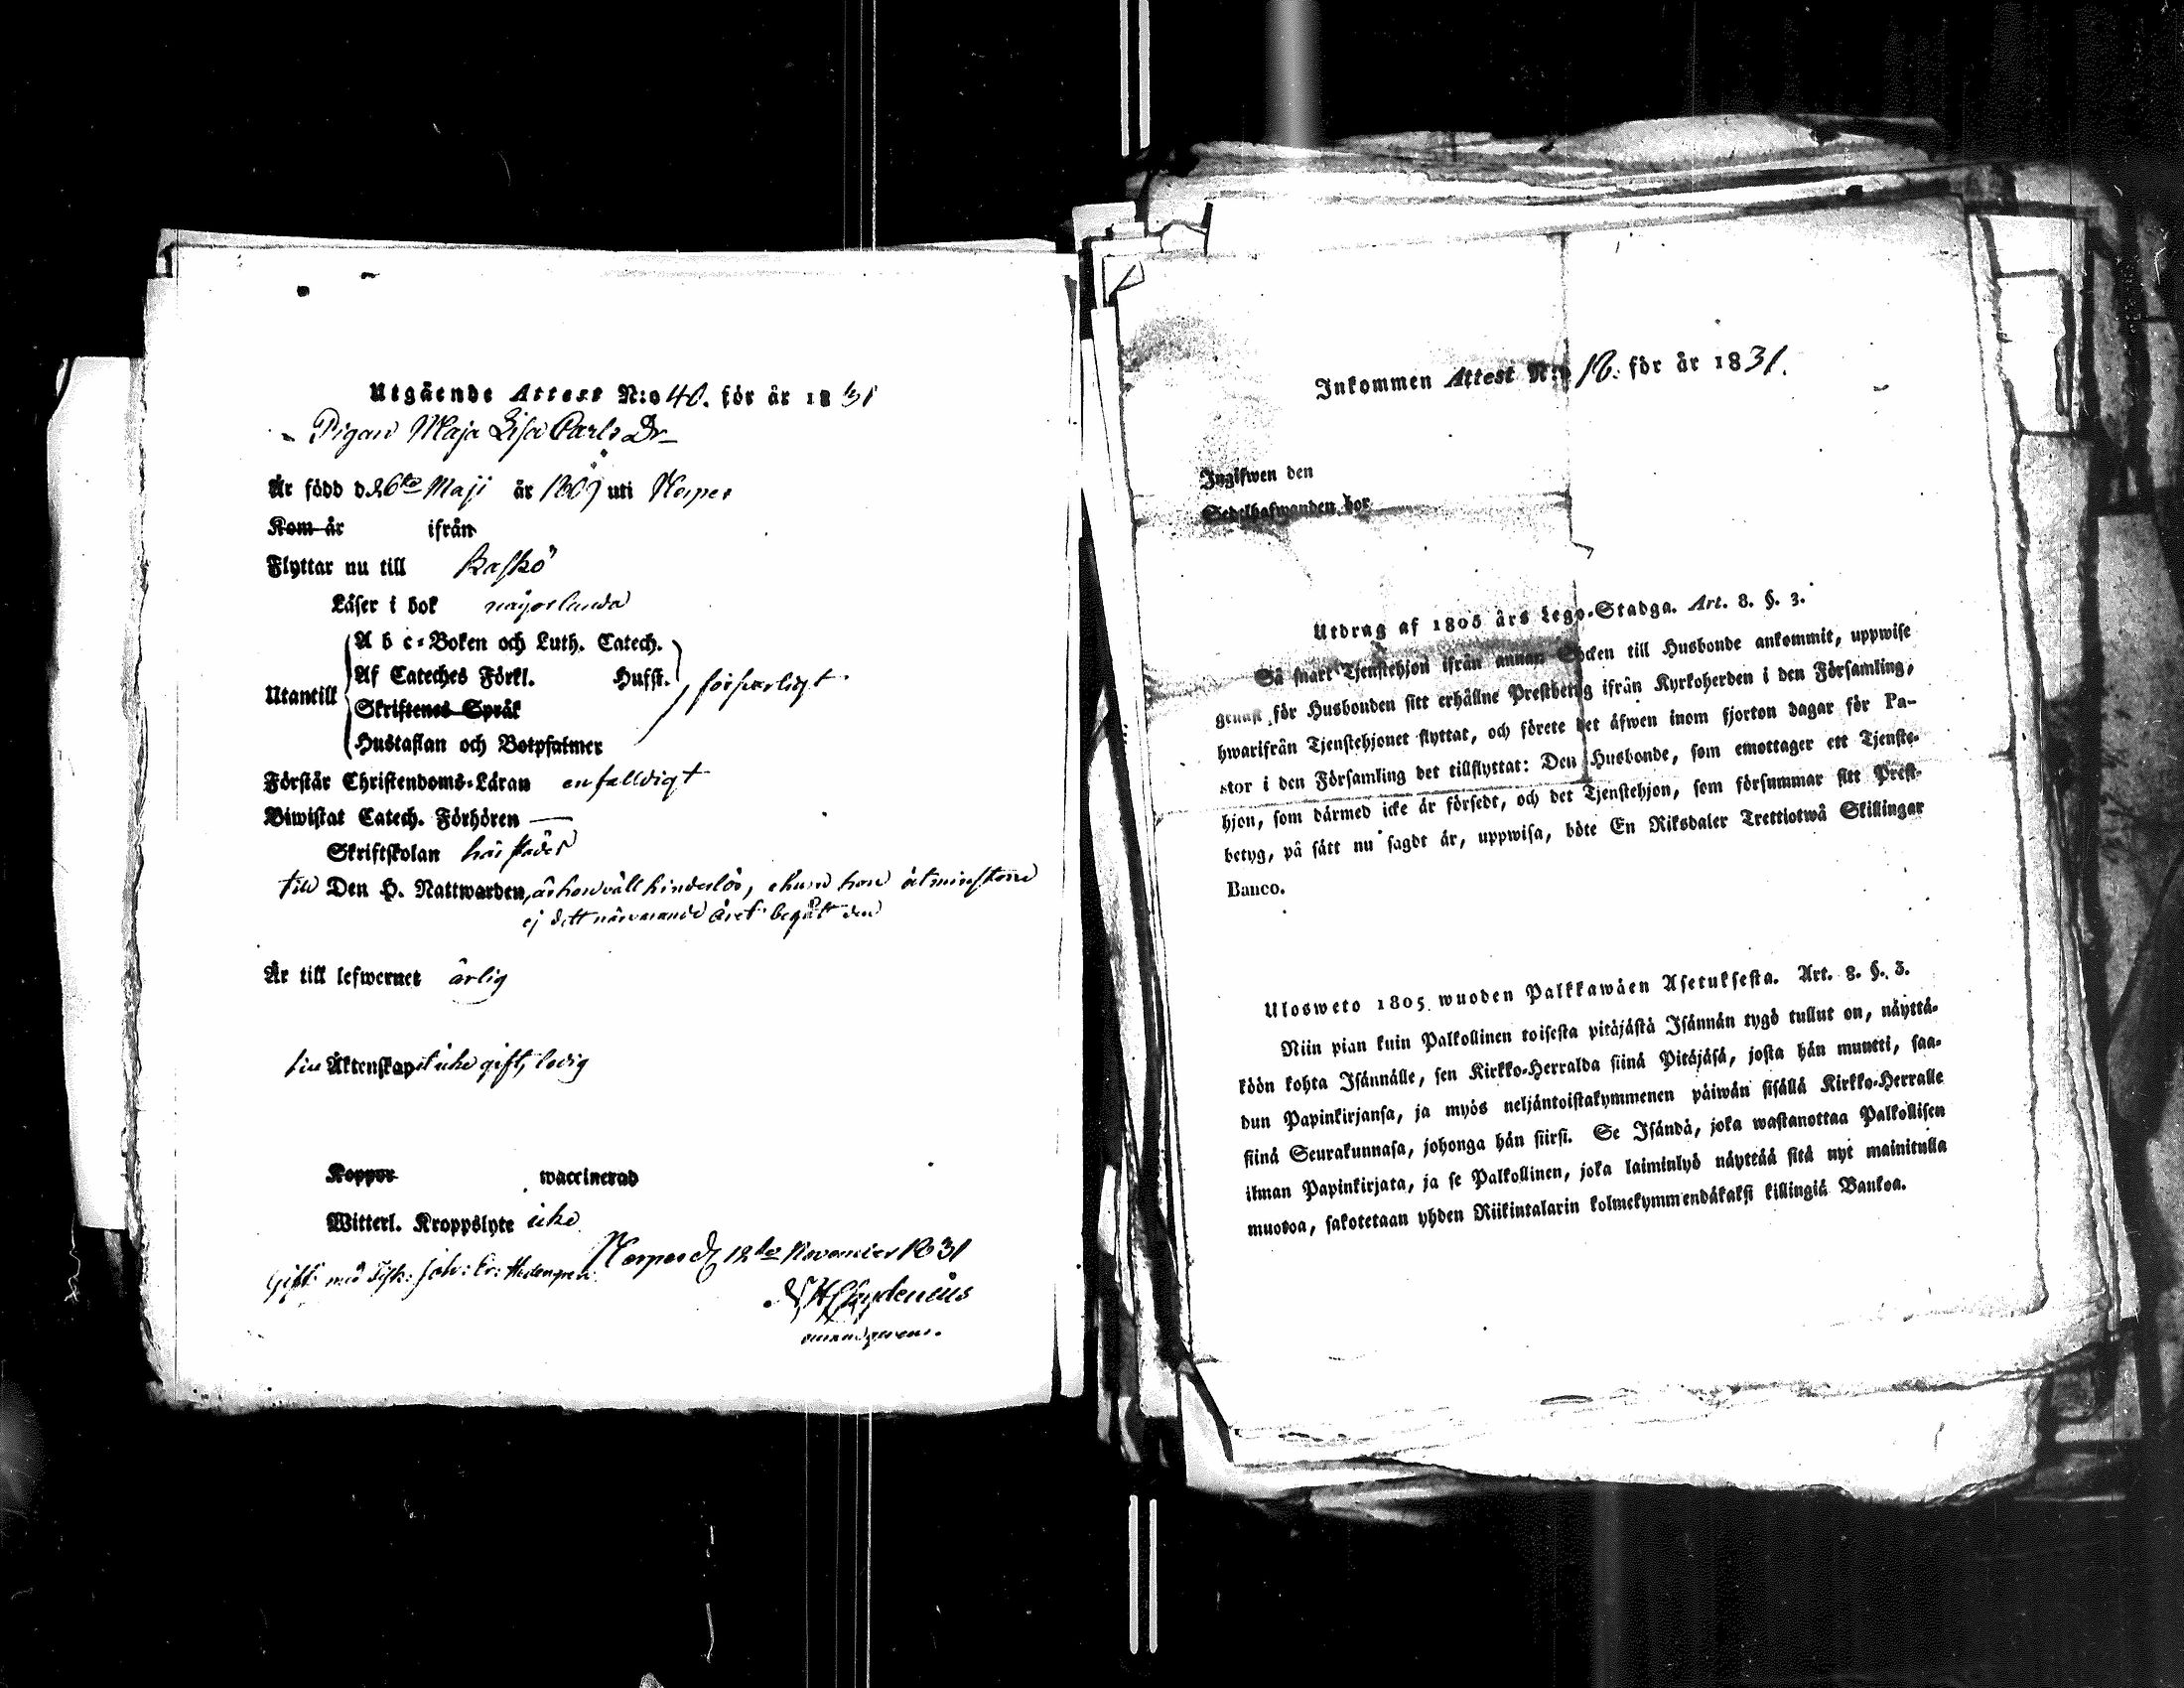 Utgående Attest N:o 40. för år 1831
Pigan Maja Lisa Carls Dr
Är född d 26te Maji år 1809 uti Nerpes
Kom år ifrån
Flyttar nu till Kaskö
Läser i bok någorlunda
A b c-Boken och Luth. Catech.
Af Cateches Förkl. Hufst.
Utantill försvarligt
Skriftenes Språk
Hustaflan och Botpsalmer
Förstår Christendoms-Läran enfaldigt
Biwistat Catech. Förhören —
Skriftskolan härstädes
till Den H. Nattwarden, är hon väll hinderlös, ehuru hon åtminstone
ej dett närvarande året begått den
Är till lefwernet ärlig
till Äktenskapet icke gift, ledig
Koppor waccinerad
Witterl. Kroppslyte icke
Nerpes d 12te November 1831
Gift med Fisk: Joh: Er:
Chydenius
Inkommen Attest N:o 18. för år 1831.
Ingifwen den
Sedelhafwanden bor
Utdrag af 1805 års Lego-Stadga. Art. 8. §. 3.
Så snart Tjenstehjon ifrån annan Socken till Husbonde ankommit, uppwise
genast för Husbonden sitt erhållne Prestbetyg ifrån Kyrkoherden i den Församling,
hwarifrån Tjenstehjonet flyttat, och förete det äfwen inom fjorton dagar för Pa-
stor i den Församling det tillflyttat: Den Husbonde, som emottager ett Tjenste-
hjon, som därmed icke är försedt, och det Tjenstehjon, som försummar sitt Prest-
betyg, på sätt nu sagdt är, uppwisa, böte En Riksdaler Trettiotwå Skillingar
Banco.
Ulosweto 1805 wuoden Palkkawäen Asetuksesta. Art. 8. §. 3.
Niin pian kuin Palkollinen toisesta pitäjästä Isännän tygö tullut on, näyttä-
köön kohta Isännälle, sen Kirkko-Herralda siinä Pitäjäsä, josta hän muutti, saa-
dun Papinkirjansa, ja myös neljäntoistakymmenen päiwän sisällä Kirkko-Herralle
siinä Seurakunnasa, johonga hän siirsi. Se Isändä, joka wastanottaa Palkollisen
ilman Papinkirjata, ja se Palkollinen, joka laiminlyö näyttää sitä nyt mainitulla
muodoa, sakotetaan yhden Riikintalarin kolmekymmendäkaksi killingiä Bankoa.